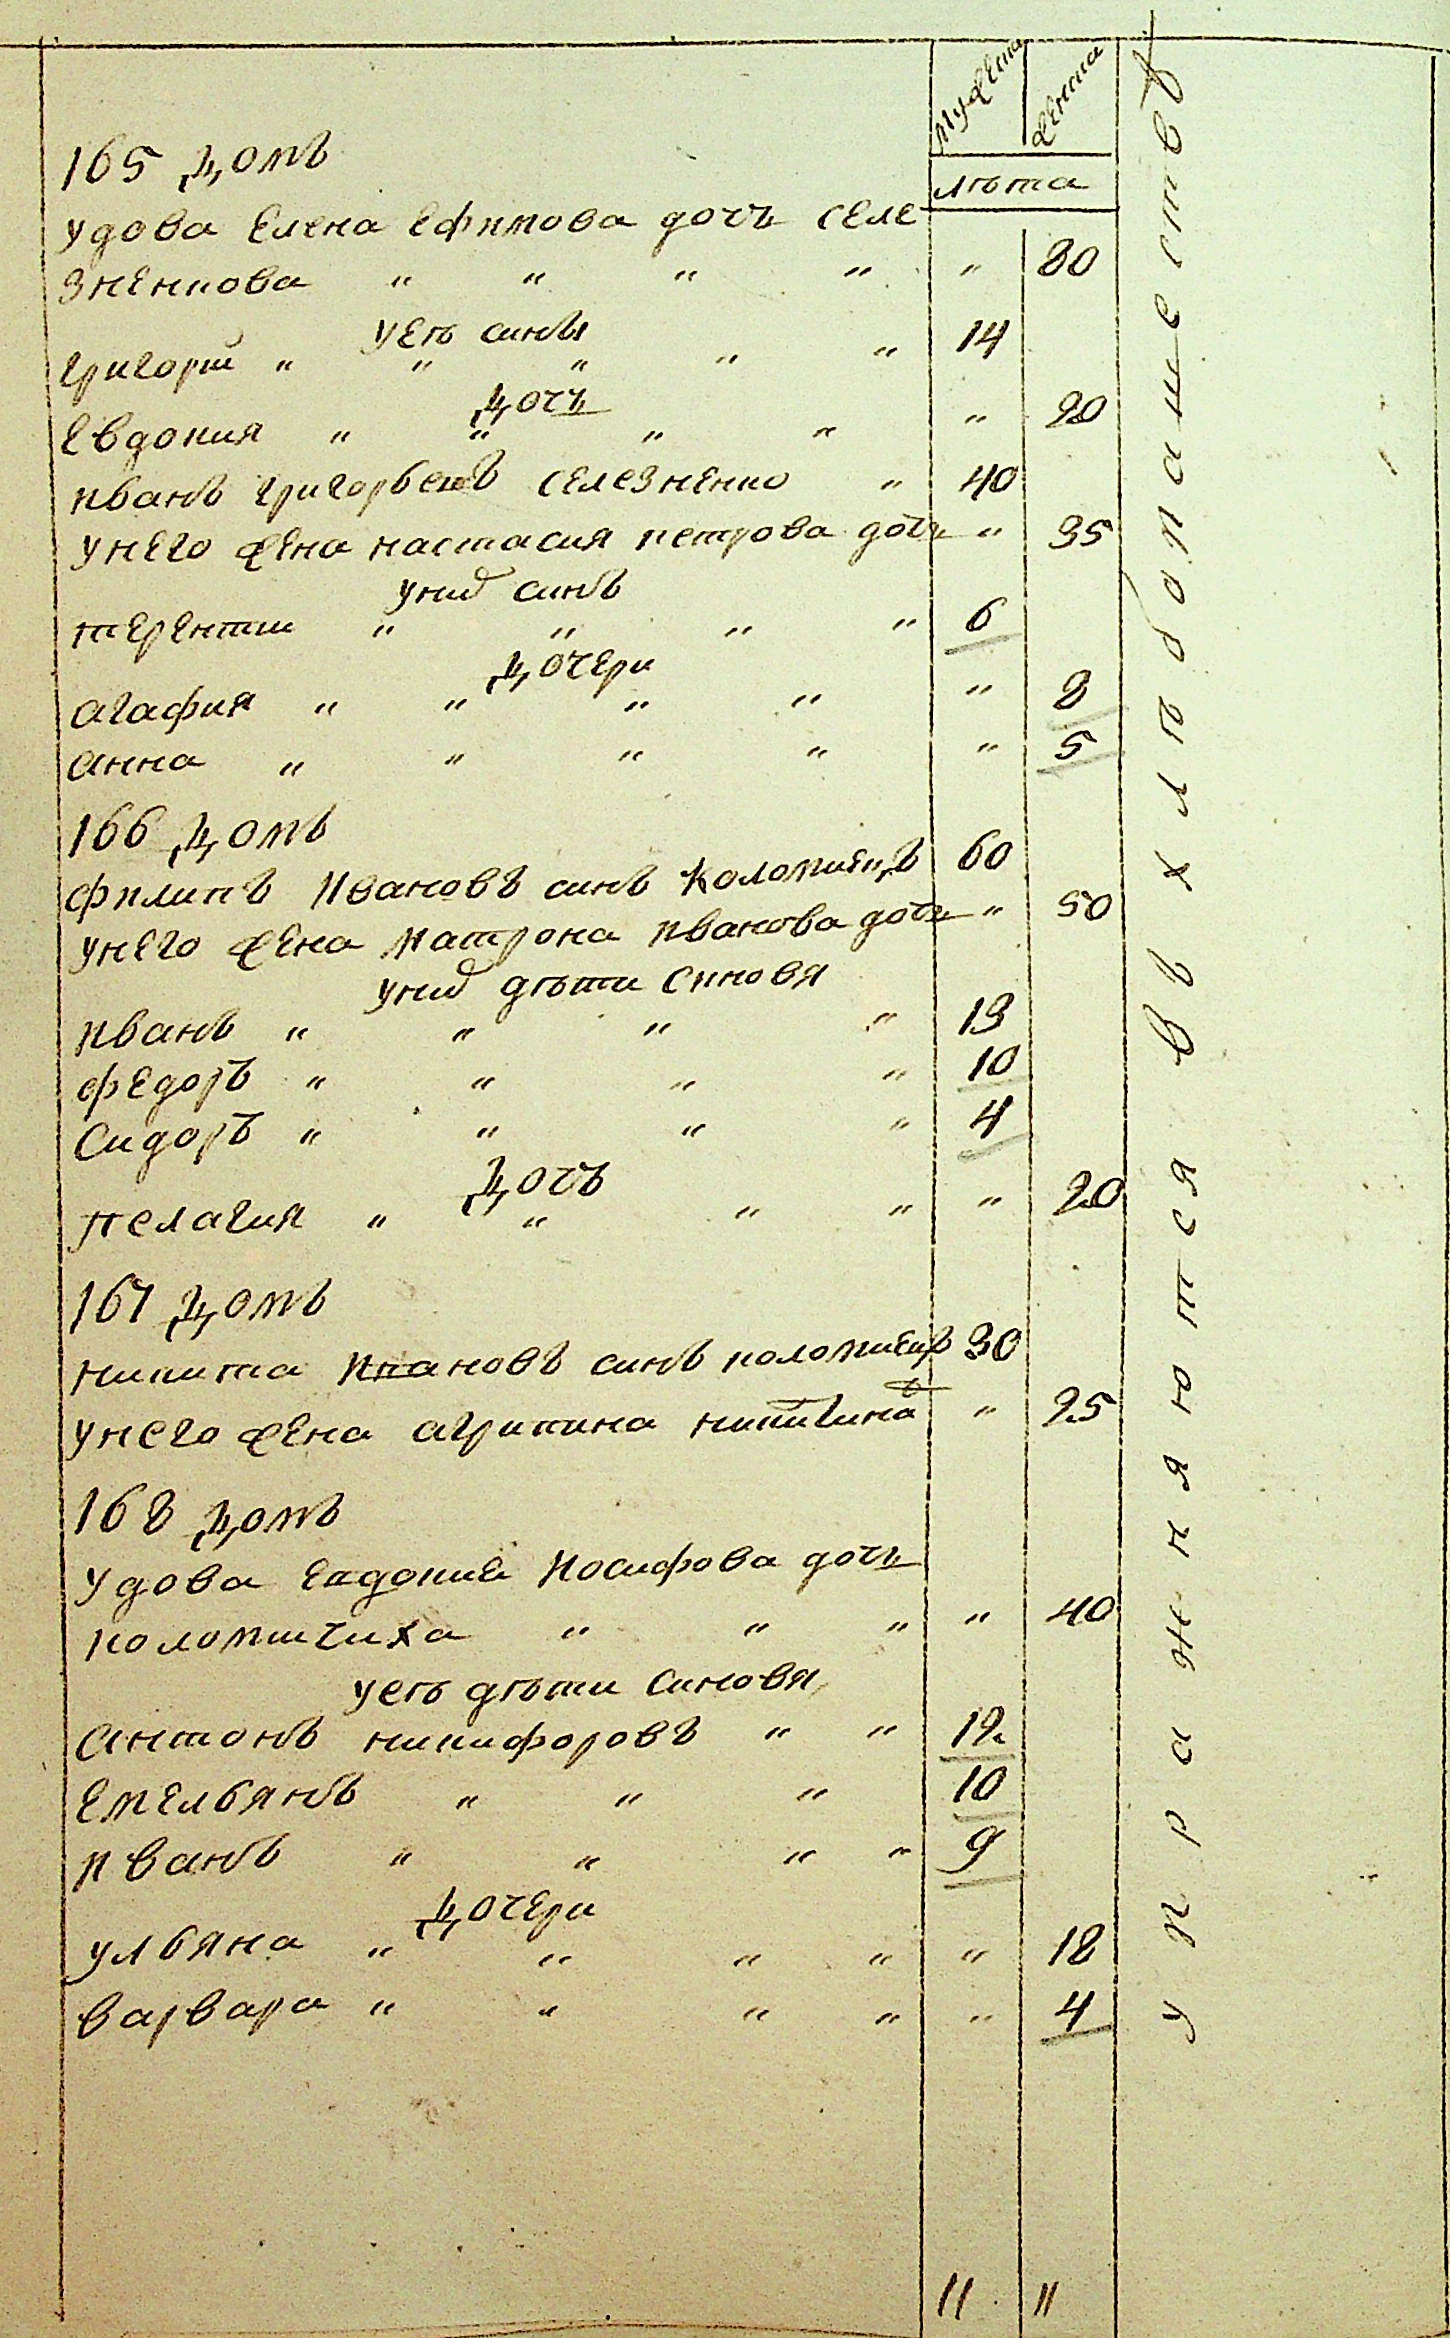 мужеска
женска
лѣта
165 домъ
удова Елена Ефимова дочъ Селе
зненкова " " " " " 80
уеѣ синъ
григорий " " " " " 14
дочъ
Евдокия " " " " " 20
иванъ григорьевъ селезненко " 40
унего жена настасия петрова дочъ " 35
уних синъ
терентии " " " " 6
дочери
агафия " " " " " 8
анна " " " " " 5
166 домъ
филипъ Ивановъ синъ Коломиецъ 60
унего жена Матрона иванова дочъ " 50
уних дѣти синовя
иванъ " " " " 13
федоръ " " " " 10
Сидоръ " " " " 4
дочъ
пелагия " " " " " 20
167 домъ
никита Ивановъ синъ коломиецъ 30
унего жена агрипина никитина д " 25
168 домъ
удова Евдокия Иосифова дочъ
коломийчиха " " " " 40
уеѣ дѣти синовя
антонъ никифоровъ " " 12
Емельянъ " " " 10
иванъ " " " " 9
дочери
ульяна " " " " " 18
варвара " " " " " 4
11 11
упражняются въ хлѣбопашествѣ